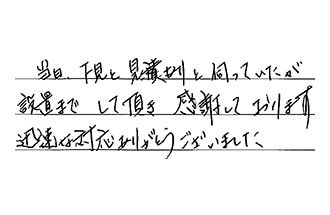 当日、下見と見積りと伺っていたが
設置まで して頂き 感謝して おります
迅速な対応ありがとうございました